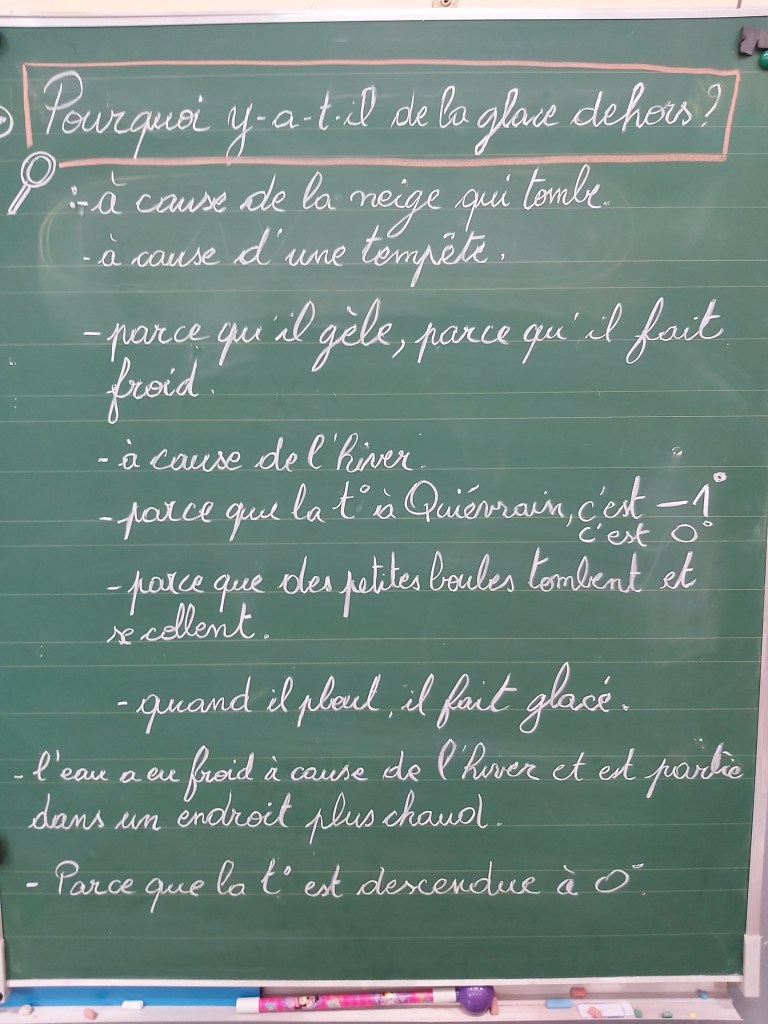 Pourquoi y-a-t-il de la glace dehors?
- à cause de la neige qui tombe.
- à cause d'une tempête.
- parce qu'il gèle, parce qu'il fait
froid.
- à cause de l'hiver.
- parce que la t° à Quiévrain, c'est -1°
c'est 0°
- parce que des petites boules tombent et
se collent.
- quand il pleut, il fait glacé.
- l'eau a eu froid à cause de l'hiver et est partie
dans un endroit plus chaud.
- Parce que la t° est descendue à 0°.